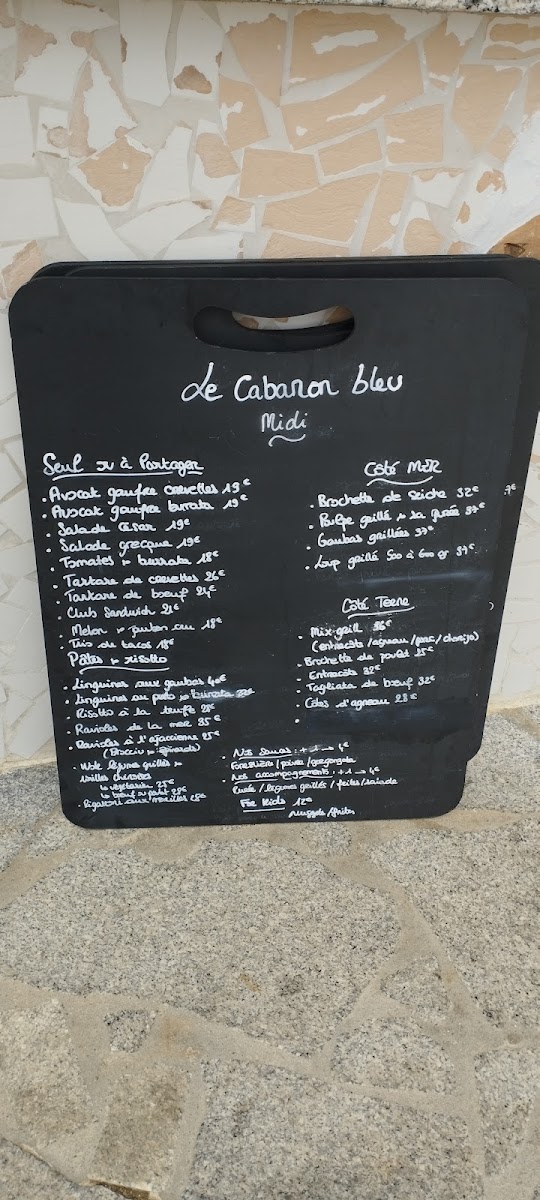 Le Cabanon bleu
Midi
Seul ou à Partager
. Avocat gaufre crevettes 19€
. Avocat gaufre burrata 19€
. Salade César 19€
. Salade grecque 19€
. Tomates burrata 18€
. Tartare de crevettes 26€
. Tartare de boeuf 24€
. Club Sandwich 21€
. Melon jambon cru 18€
. Trio de tacos 18€
Pâtes Risotto
. Linguines aux gambas 40€
. Linguines au pesto burrata
. Risotto à la truffe 28€
. Ravioles de la mer 35€
. Ravioles à l'ajaccienne 25€
(Brocciu épinards)
. Wok légumes grillés
Nouilles chinoises
végétarien 25€
boeuf ou poulet 28€
. Rigatoni aux morilles 28€
Côté MER
. Brochette de seiche 32€
. Poulpe grillé la purée 37€
. Gambas grillées 37€
. Loup grillé 500 à 600 gr 37€
Côté Terre
. Mix-grill 36€
(entrecôte/agneau/porc/chorizo)
. Brochette de poulet 25€
. Entrecôte 32€
. Tagliata de boeuf 32€
. Côtes d'agneau 28€
.
. Nos Sauces : +1 → 4€
Forestière / poivre / gorgonzola
. Nos accompagnements : +1 → 4€
. Purée / légumes grillés / frites / salade
For Kids 12€
Nuggets/frites